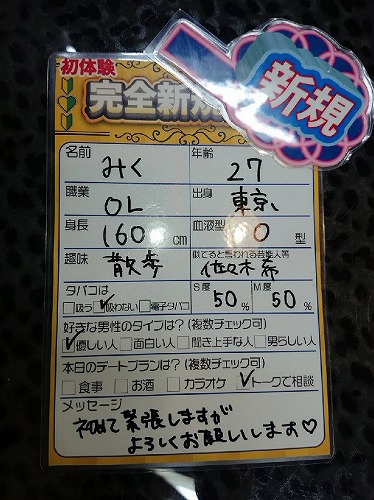 初体験
完全新規
新規
名前 みく 年齢 27
職業 OL 出身 東京
身長 160cm 血液型 O型
趣味 散歩 似てると言われる芸能人等 佐々木希
タバコは S度 M度
吸う 吸わない 電子タバコ 50% 50%
好きな男性のタイプは?(複数チェック可)
優しい人 面白い人 聞き上手な人 男らしい人
本日のデートプランは?(複数チェック可)
食事 お酒 カラオケ トークで相談
メッセージ
初めて緊張しますが
よろしくお願いします♡